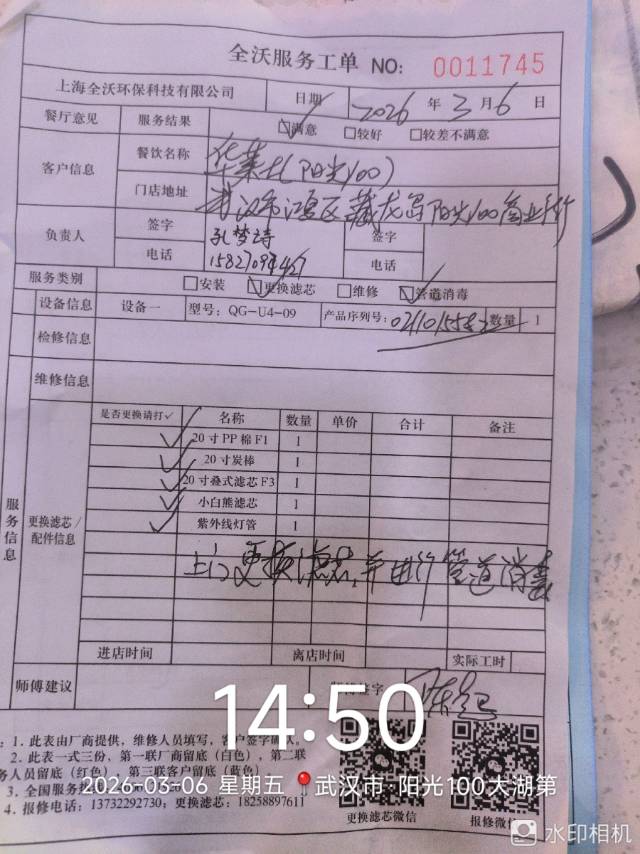 全沃服务工单 NO: 0011745
上海全沃环保科技有限公司 日期 2026 年 3 月 6 日
餐厅意见 服务结果 ☑满意 □较好 □较差不满意
客户信息 餐饮名称 华莱士(阳光100)
门店地址 武汉市 区藏龙岛阳光100商业街
负责人 签字 孔梦诗 签字
电话 电话
服务类别 □安装 ☑更换滤芯 □维修 ☑管道消毒
设备信息 设备一 型号: QG-U4-09 产品序列号: 数量 1
检修信息
维修信息
服务信息 更换滤芯/配件信息
是否更换请打✓ 名称 数量 单价 合计 备注
✓ 20寸PP棉F1 1
✓ 20寸炭棒 1
✓ 20寸叠式滤芯F3 1
✓ 小白熊滤芯 1
✓ 紫外线灯管 1
上门更换滤芯,并进行管道消毒
进店时间 离店时间 实际工时
师傅建议 签字
14:50
: 1. 此表由厂商提供，维修人员填写，客户签字确认。
2. 此表一式三份、第一联厂商留底（白色），第二联
务人员留底（红色），第三联客户留底（蓝色）
3. 全国服务
2026-03-06 星期五 武汉市·阳光100大湖第
4. 报修电话: 13732292730; 更换滤芯: 18258897611
更换滤芯微信 报修微信
水印相机